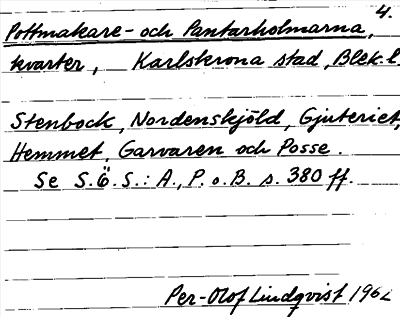 4.
Pottmakare- och Pantarholmarna,
kvarter, Karlskrona stad, Blek.l.
Stenbock, Nordenskjöld, Gjuteriet,
Hemmet, Garvaren och Posse.
Se S.Ö.S.: A., P. o. B. s. 380 ff.
Per-Olof Lindqvist 1962